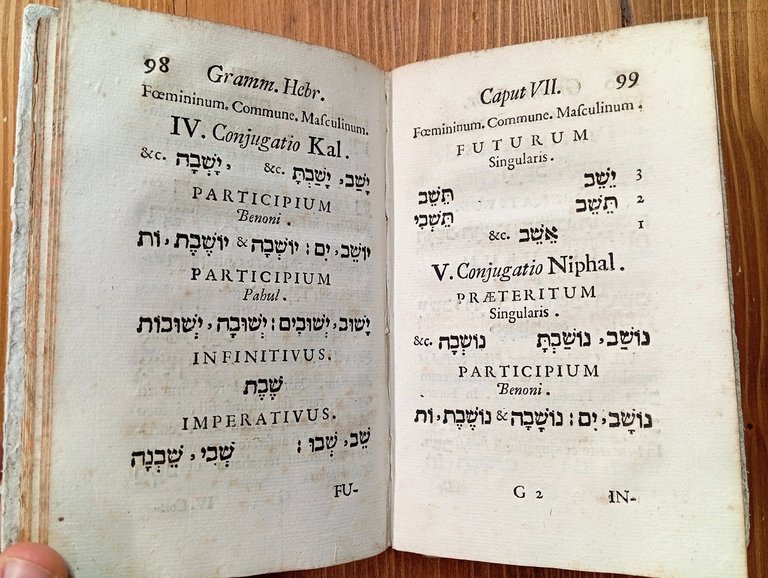 98 Gramm. Hebr.
Fœmininum. Commune. Maſculinum.
IV. Conjugatio Kal.
יָשַׁב, יָשַׁבְתָּ &c. יָשְׁבָה, &c.
PARTICIPIUM
Benoni.
יוֹשֵׁב, ים: יוֹשְׁבָה & יוֹשֶׁבֶת, וֹת
PARTICIPIUM
Pahul.
יָשׁוּב, יְשׁוּבִים: יְשׁוּבָה, יְשׁוּבוֹת
INFINITIVUS.
שֶׁבֶת
IMPERATIVUS.
שֵׁב, שְׁבוּ: שְׁבִי, שֵׁבְנָה
FU-
Caput VII. 99
Fœmininum. Commune. Maſculinum.
FUTURUM
Singularis.
3 יֵשֵׁב תֵּשֵׁב
2 תֵּשֵׁב תֵּשְׁבִי
1 אֵשֵׁב &c.
V. Conjugatio Niphal.
PRÆTERITUM
Singularis.
נוֹשַׁב, נוֹשַׁבְתָּ נוֹשְׁבָה &c.
PARTICIPIUM
Benoni.
נוֹשָׁב, ים: נוֹשָׁבָה & נוֹשֶׁבֶת, וֹת
G 2 IN-